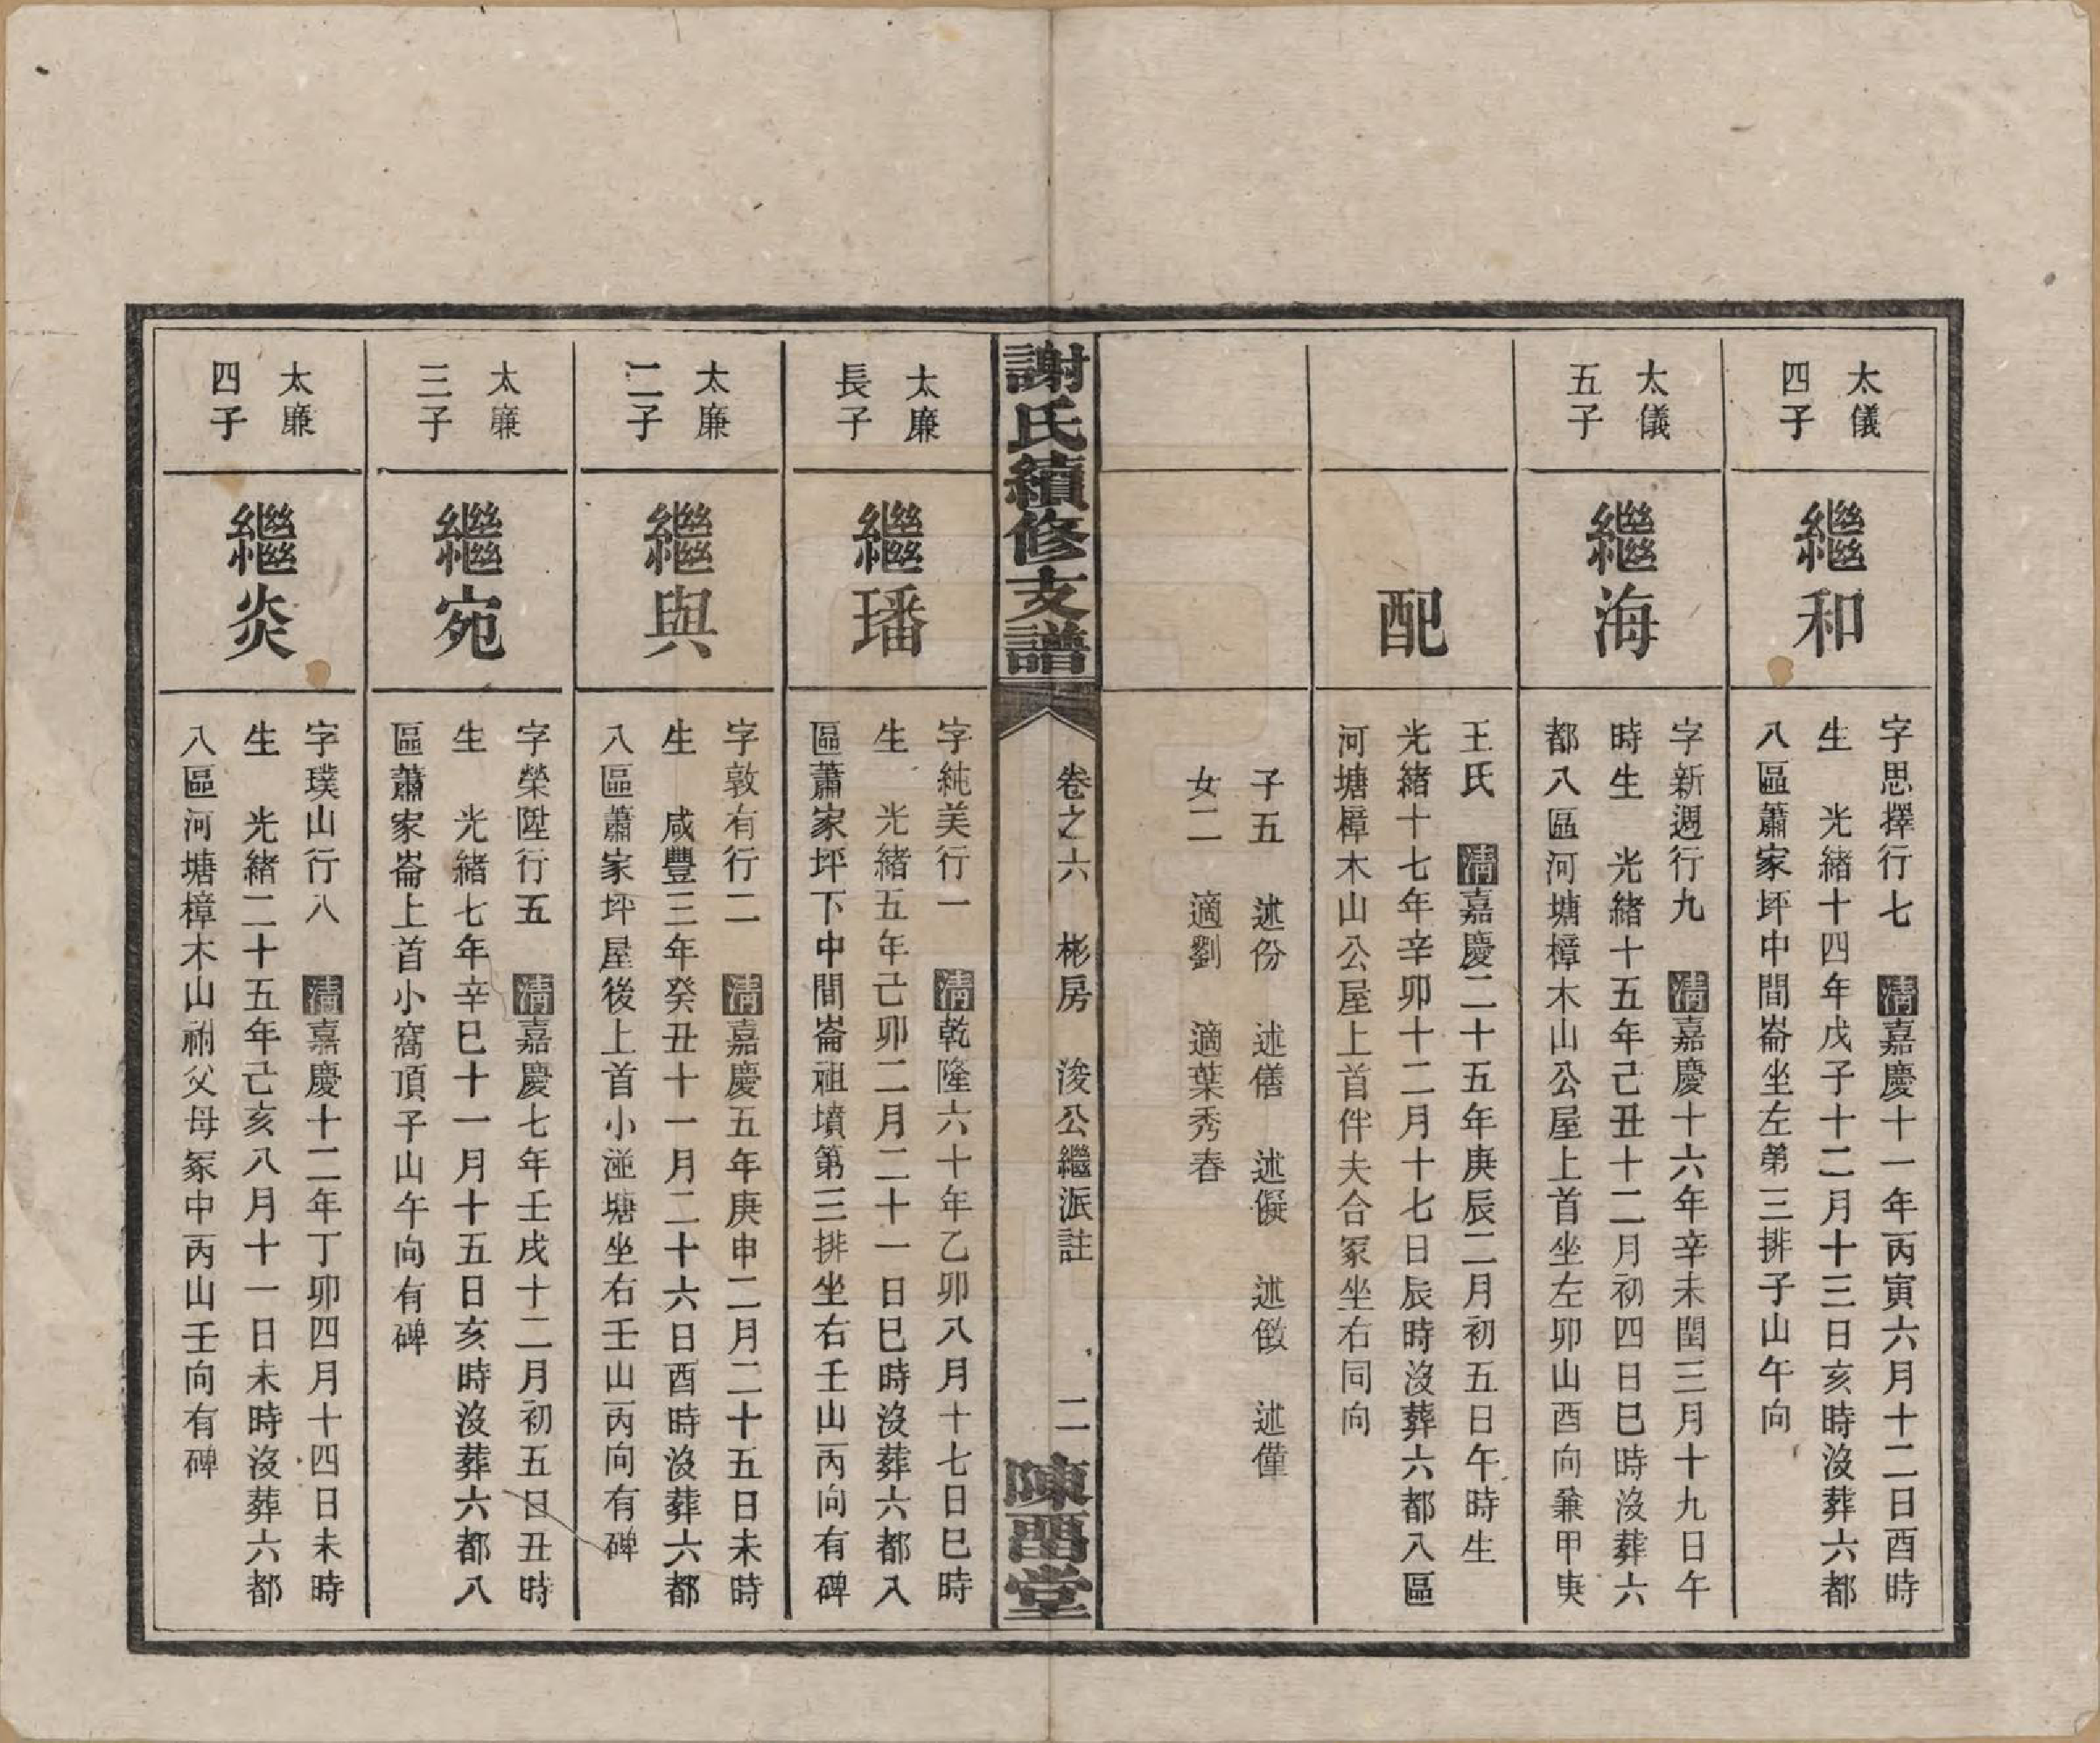 太儀
四子
繼和
字思擇行七　清嘉慶十一年丙寅六月十二日酉時
生　光緒十四年戊子十二月十三日亥時沒葬六都
八區蕭家坪中間崙坐左第三排子山午向
太儀
五子
繼海
字新週行九　清嘉慶十六年辛未閏三月十九日午
時生　光緒十五年己丑十二月初四日巳時沒葬六
都八區河塘樟木山公屋上首坐左卯山酉向兼甲庚
配
王氏　清嘉慶二十五年庚辰二月初五日午時生
光緒十七年辛卯十二月十七日辰時沒葬六都八區
河塘樟木山公屋上首伴夫合冢坐右同向
子五　述份　述僐　述儗　述儌　述僮
女二　適劉　適葉秀春
謝氏續修支譜
卷之六　彬房　浚公繼派註　二
陳畱堂
太廉
長子
繼璠
字純美行一　清乾隆六十年乙卯八月十七日巳時
生　光緒五年己卯二月二十一日巳時沒葬六都八
區蕭家坪下中間崙祖墳第三排坐右壬山丙向有碑
太廉
二子
繼與
字敦有行二　清嘉慶五年庚申二月二十五日未時
生　咸豐三年癸丑十一月二十六日酉時沒葬六都
八區蕭家坪屋後上首小湴塘坐右壬山丙向有碑
太廉
三子
繼宛
字榮陞行五　清嘉慶七年壬戌十二月初五日丑時
生　光緒七年辛巳十一月十五日亥時沒葬六都八
區蕭家崙上首小窩頂子山午向有碑
太廉
四子
繼炎
字璞山行八　清嘉慶十二年丁卯四月十四日未時
生　光緒二十五年己亥八月十一日未時沒葬六都
八區河塘樟木山祔父母冢中丙山壬向有碑